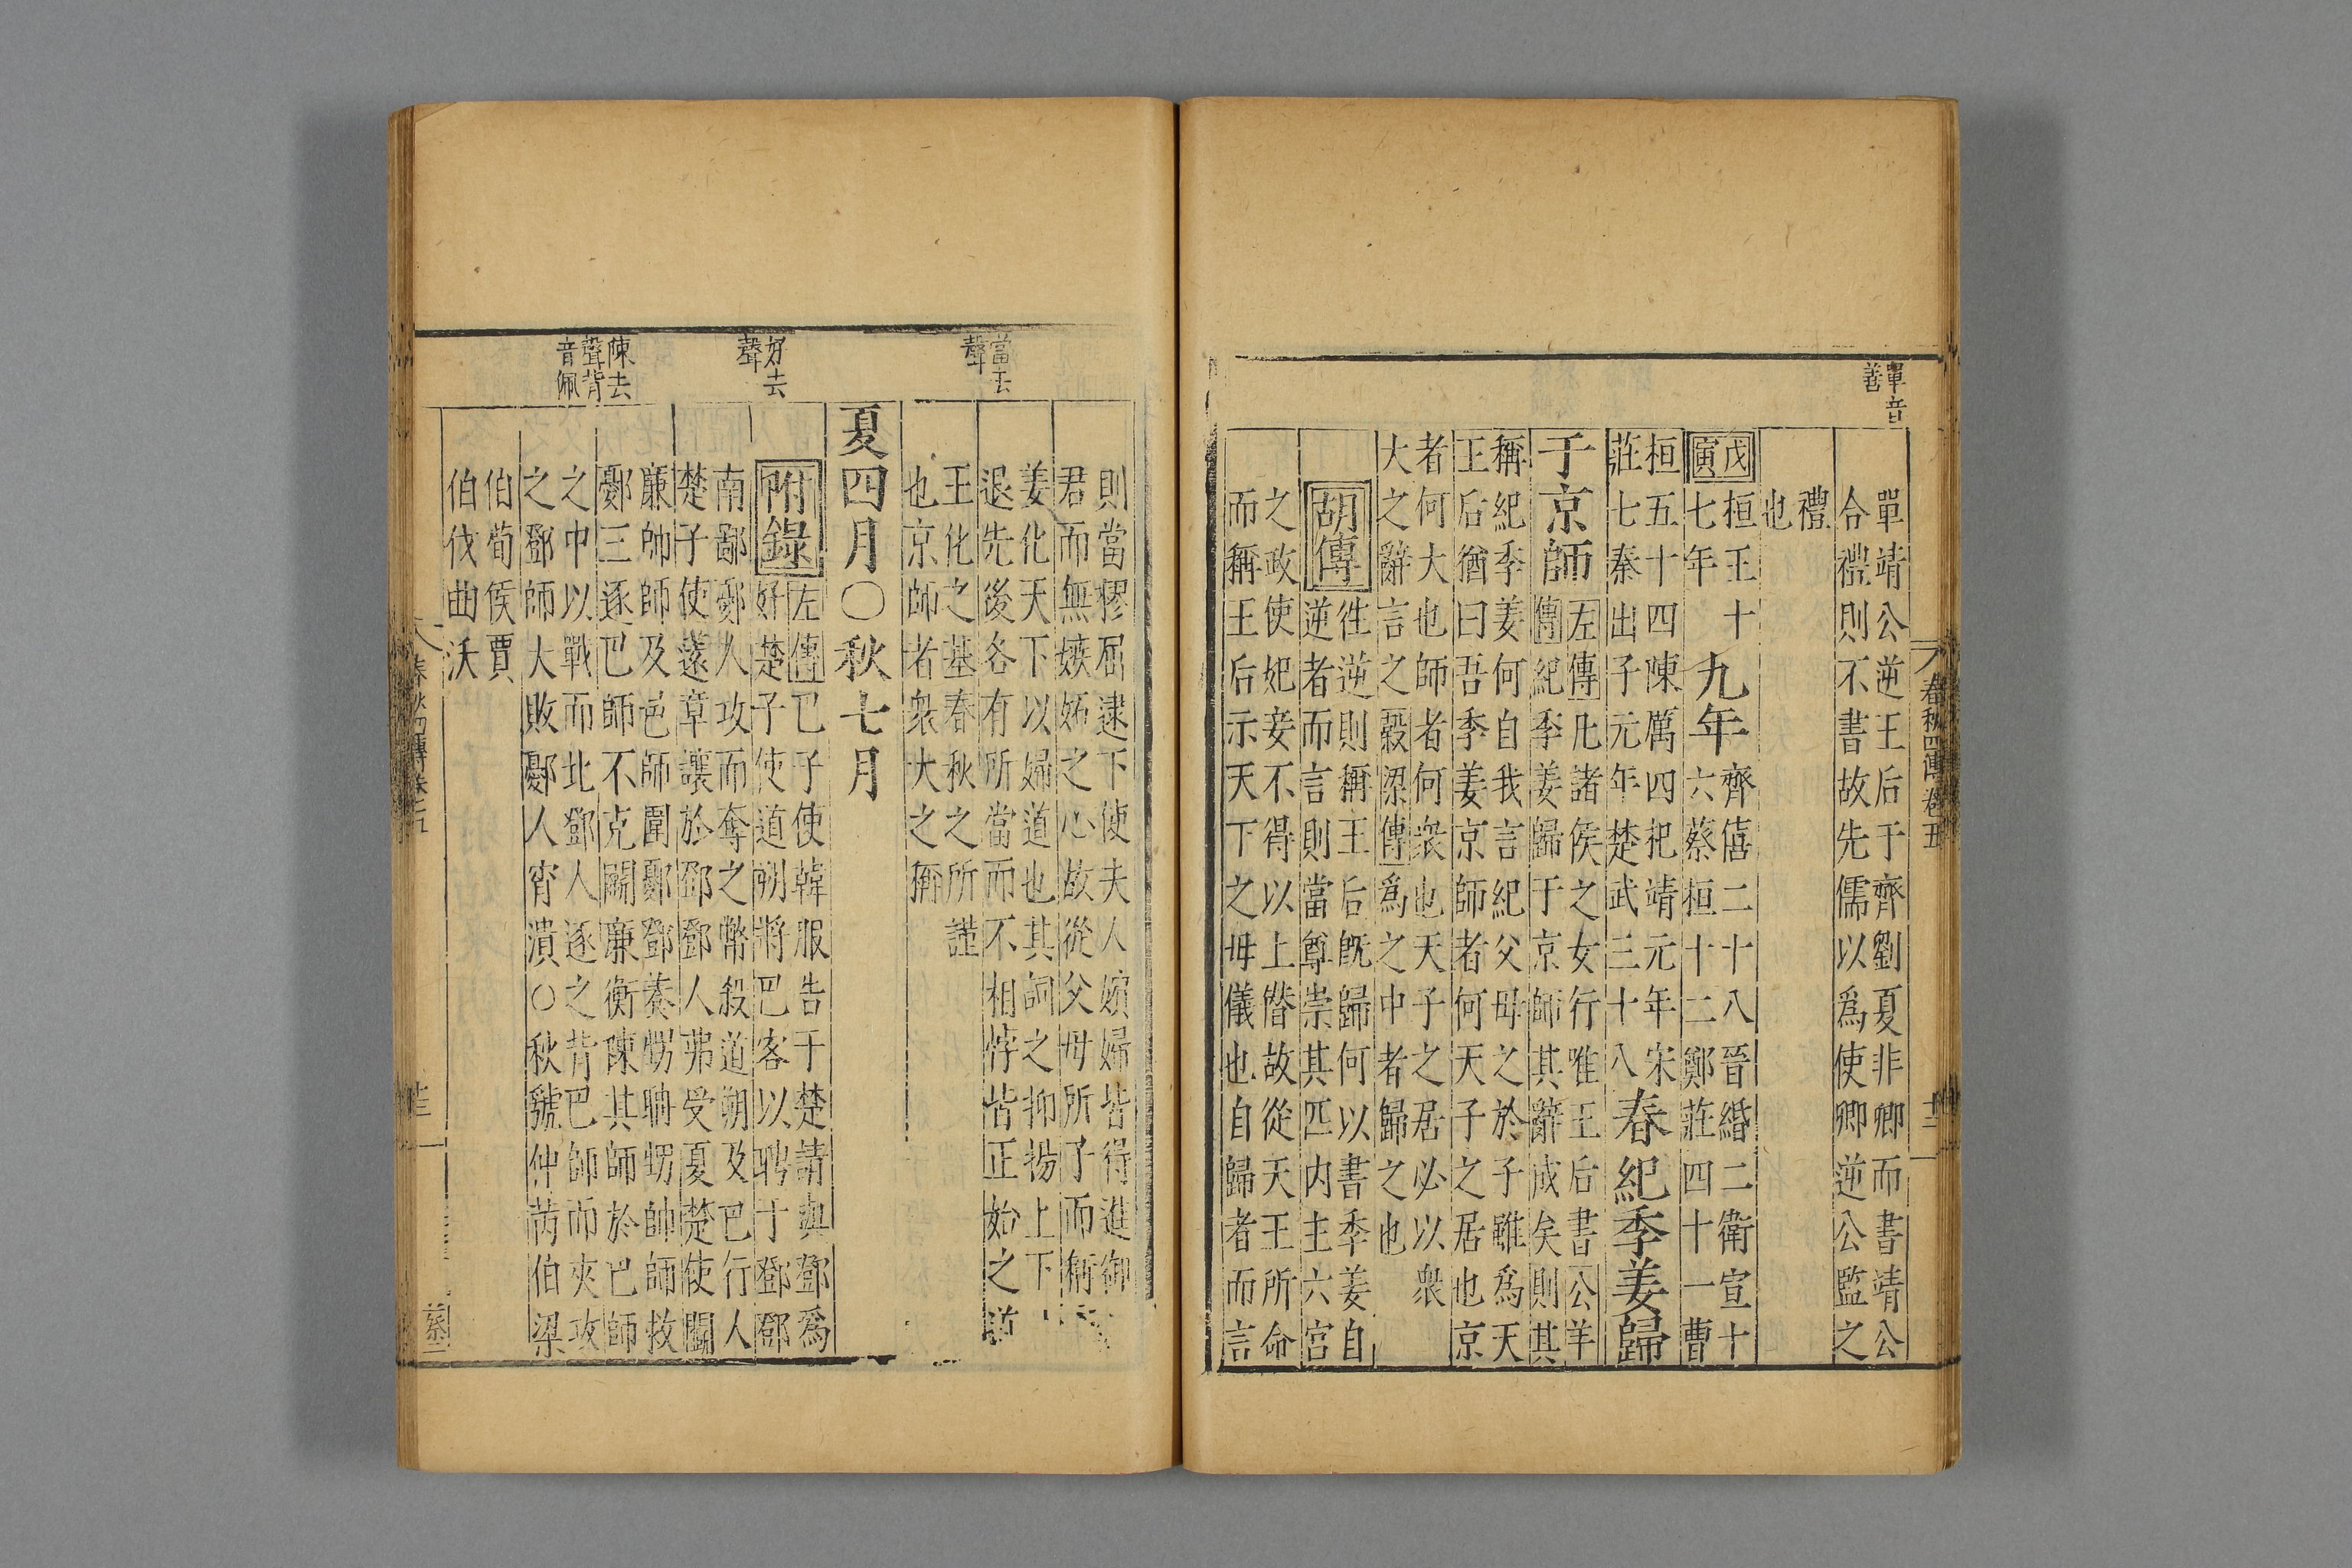 單音
善
春秋四傳卷五
十三
單靖公逆王后于齊劉夏非卿而書靖公
合禮則不書故先儒以爲使卿逆公監之
禮
也
戊寅
桓王十
七年
九年
齊僖二十八晉緡二衛宣十
六蔡桓十二鄭莊四十一曹
桓五十四陳厲四杞靖元年宋
莊七秦出子元年楚武三十八
春紀季姜歸
于京師
左傳凡諸侯之女行唯王后書公羊
傳紀季姜歸于京師其辭成矣則其
稱紀季姜何自我言紀父母之於子雖爲天
王后猶曰吾季姜京師者何天子之居也京
者何大也師者何衆也天子之居必以衆
大之辭言之穀梁傳爲之中者歸之也
胡傳
徃逆則稱王后旣歸何以書季姜自
逆者而言則當尊崇其匹內主六宮
之政使妃妾不得以上僭故從天王所命
而稱王后示天下之母儀也自歸者而言
當去
聲
好去
聲
陳去
聲背
音佩
則當樛屈逮下使夫人嬪婦皆得進御
君而無嫉妬之心故從父母所子而稱
姜化天下以婦道也其詞之抑揚上下
退先後各有所當而不相悖皆正始之道
王化之基春秋之所謹
也京師者衆大之稱
夏四月〇秋七月
附錄
左傳巴子使韓服告于楚請與鄧爲
好楚子使道朔將巴客以聘于鄧鄧
南鄙鄾人攻而奪之幣殺道朔及巴行人
楚子使薳章讓於鄧鄧人弗受夏楚使鬬
廉帥師及巴師圍鄾鄧養甥聃甥帥師救
鄾三逐巴師不克鬬廉衡陳其師於巴師
之中以戰而北鄧人逐之背巴師而夾攻
之鄧師大敗鄾人宵潰〇秋虢仲芮伯梁
伯荀侯賈
伯伐曲沃
春秋四傳卷五